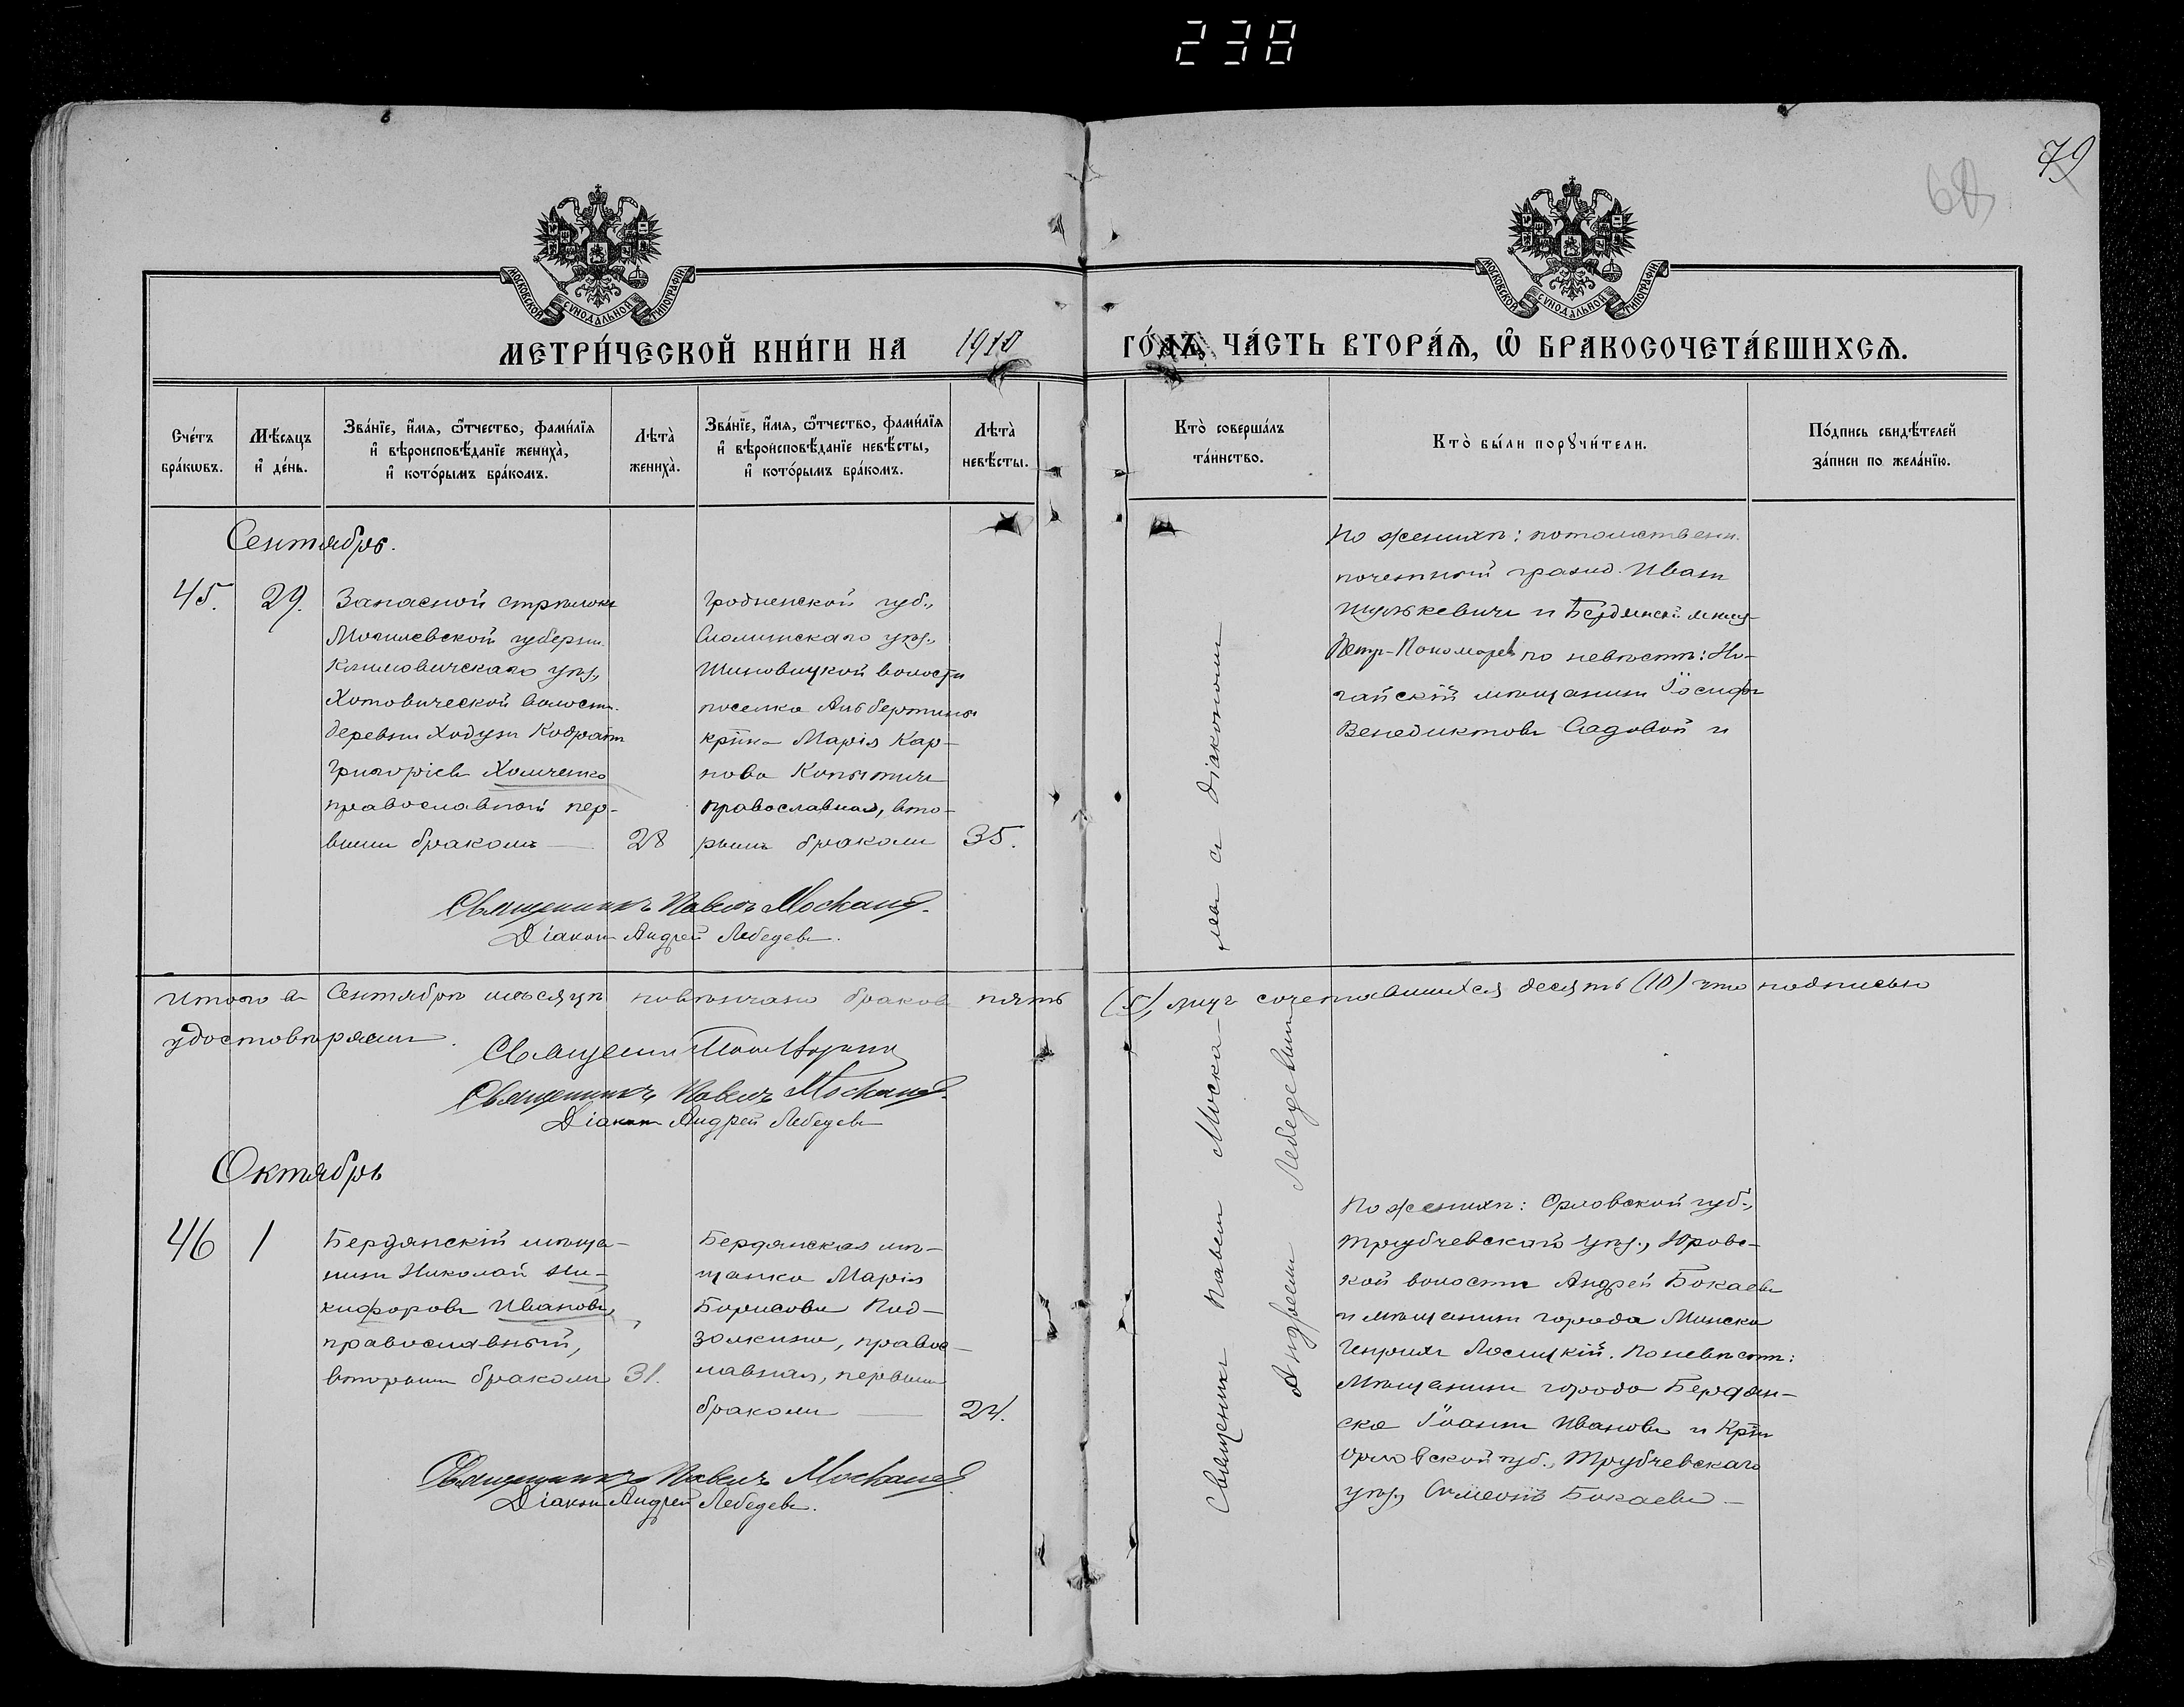 238
79
68
МОСКОВСКОЙ СУНОДАЛЬНОЙ ТИПОГРАФІИ
МОСКОВСКОЙ СУНОДАЛЬНОЙ ТИПОГРАФІИ
МЕТРИ́ЧЕСКОЙ КНИ́ГИ НА 1910 ГО́ДЪ, ЧА́СТЬ ВТОРА́Ѧ, Ѡ҆ БРАКОСОЧЕТА́ВШИХСѦ.
Сче́тъ бра́кѡвъ.
Мѣ́сяцъ и҆ де́нь.
Зва́нїе, и҆́мя, ѻ҆́тчество, фами́лїя
и҆ вѣроисповѣ́данїе жениха̀,
и҆ кото́рымъ бра́комъ.
Лѣта̀ жениха̀.
Зва́нїе, и҆́мя, ѻ҆́тчество, фами́лїя
и҆ вѣроисповѣ́данїе невѣ́сты,
и҆ кото́рымъ бра́комъ.
Лѣта̀ невѣ́сты.
Кто̀ соверша́лъ та́инство.
Кто̀ бы́ли порꙋчи́тели.
По́дпись свидѣ́телей за́писи по жела́нїю.
Сентябрь.
45.
29.
Запасной стрѣлокъ
Могилевской губерніи
Климовичскаго уѣз.,
Хотовической волости
деревни Ходунъ Кодратъ
Григоріевъ Хомченко
православный пер-
вымъ бракомъ —
28
Гродненской губ.,
Слонимскаго уѣз.,
Шиловицкой волости
поселка Альбертинъ
кр͠нка Марія Кар-
пова Копытичъ
православная, вто-
рымъ бракомъ
35.
По женихѣ: потомствен.
почетный гражд. Иванъ
Шулькевичъ и Бердянскій мѣщ.
Петр Пономаревъ по невѣстѣ: Но-
гайскій мѣщанинъ Іосифъ
Венедиктовъ Садовой и
Священникъ Павелъ Моска-
левъ съ діакономъ
Андреемъ Лебедевымъ
Священникъ Павелъ Москалев.
Діаконъ Андрей Лебедевъ.
Итого въ Сентябрѣ мѣсяцѣ повѣнчано браковъ пять (5), лицъ сочетавшихся десять (10) что подписью
удостовѣряемъ.
Священникъ
Священникъ Павелъ Москалев.
Діаконъ Андрей Лебедевъ
Октябрь
46
1
Бердянскій мѣща-
нинъ Николай Ни-
кифоровъ Ивановъ,
православный,
вторымъ бракомъ
31.
Бердянская мѣ-
щанка Марія
Борисова Под-
золкина, правос-
лавная, первымъ
бракомъ —
24.
По женихѣ: Орловской губ.,
Трубчевскаго уѣз., Юров-
кой волости Андрей Бокаевъ
и мѣщанинъ города Минска
Генрихъ Лосицкій. По невѣстѣ:
Мѣщанинъ города Бердян-
ска Іоаннъ Ивановъ и Кр͠нъ
Орловской губ., Трубчевскаго
уѣз., Симеонъ Бокаевъ —
Священникъ Павелъ Москалев
Діаконъ Андрей Лебедевъ.